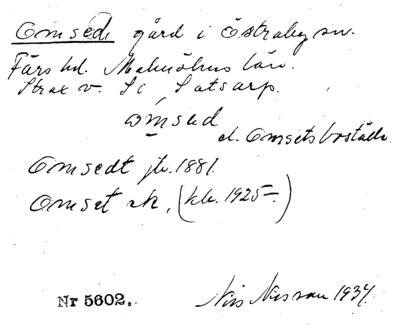 Omsed, gård i Östraby sn.
Färs hd. Malmöhus län.
Strax v. Satsarp.
omsed
el. Omsetsboställe
Omsedt jb. 1881.
Omset ek. (kb. 1925–)
Nr 5602. Nils Nilsson 1934.